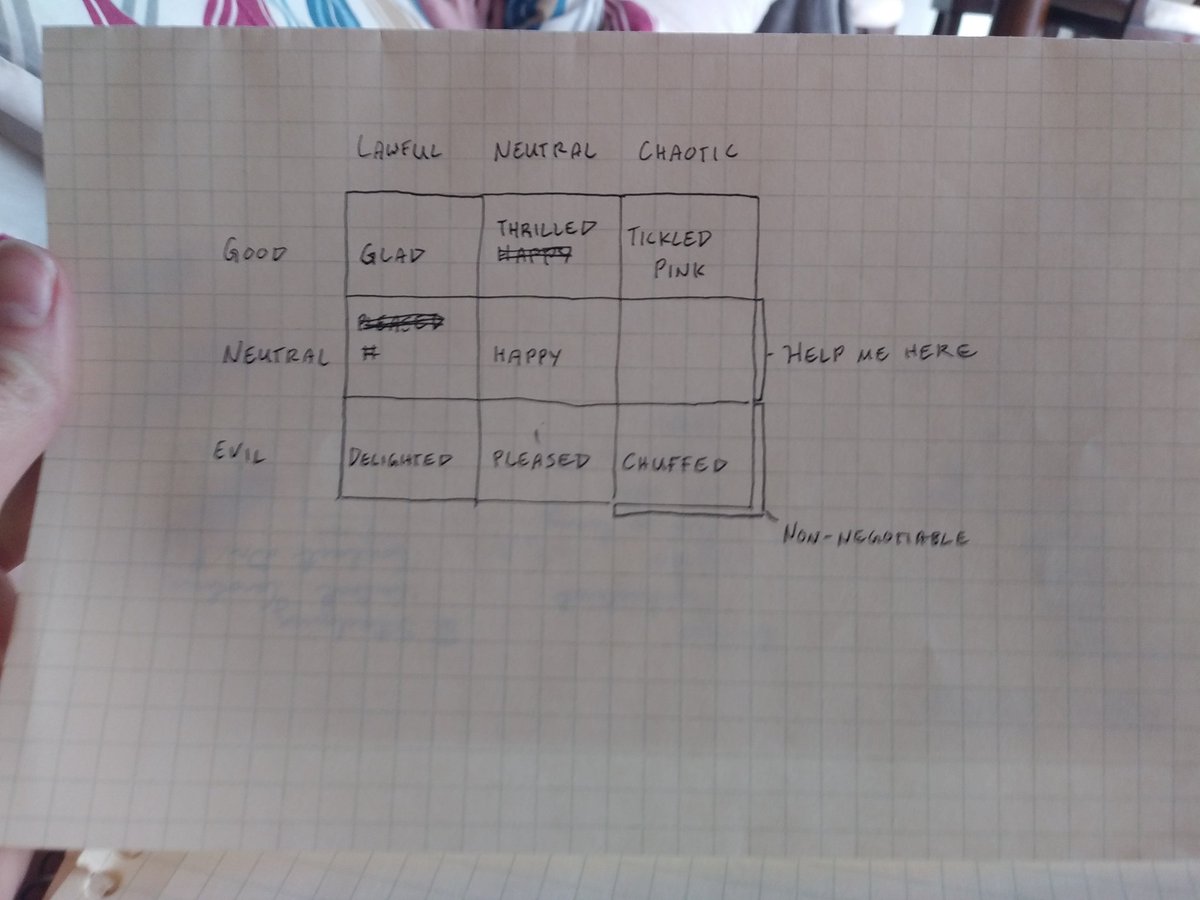 LAWFUL NEUTRAL CHAOTIC
GOOD GLAD THRILLED TICKLED
HAPPY PINK
PLEASED
NEUTRAL H HAPPY HELP ME HERE
EVIL DELIGHTED PLEASED CHUFFED
NON-NEGOTIABLE